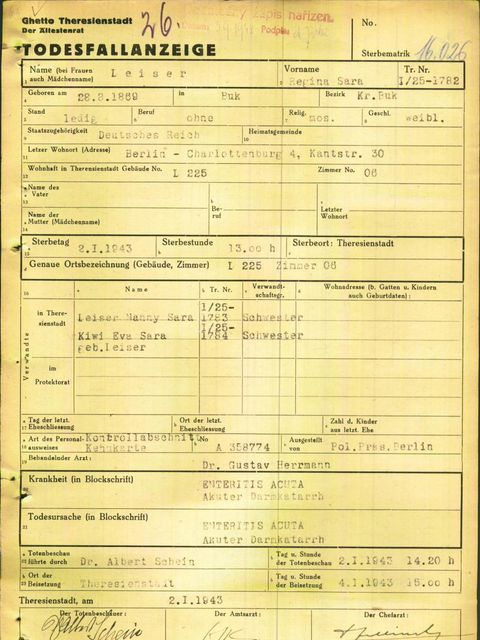 Ghetto Theresienstadt
Der Ältestenrat
TODESFALLANZEIGE
26.
zápis nařízen.
No.
Sterbematrik 16.026
Name (bei Frauen auch Mädchenname) Leiser
Vorname Regina Sara
Tr. Nr. I/25-1782
Geboren am 28.8.1869 in Buk Bezirk Kr.Buk
Stand ledig Beruf ohne Relig. mos. Geschl. weibl.
Staatszugehörigkeit Deutsches Reich Heimatsgemeinde
Letzer Wohnort (Adresse) Berlin - Charlottenburg 4, Kantstr. 30
Wohnhaft in Theresienstadt Gebäude No. L 225 Zimmer No. 06
Name des Vater Be-ruf Letzter Wohnort
Name der Mutter (Mädchenname)
Sterbetag 2.I.1943 Sterbestunde 13.00 h Sterbeort: Theresienstadt
Genaue Ortsbezeichnung (Gebäude, Zimmer) L 225 Zimmer 06
Name Tr. Nr. Verwandt-schaftsgr. Wohnadresse (b. Gatten u. Kindern auch Geburtdaten):
Verwandte
in There-sienstadt
Leiser Nanny Sara 1/25-1783 Schwester
Kiwi Eva Sara 1/25-1784 Schwester
geb.Leiser
im Protektorat
Tag der letzt. Eheschliessung Ort der letzt. Eheschliessung Zahl d. Kinder aus letzt. Ehe
Art des Personal-ausweises Kontrollabschnitt Kennkarte No A 358774 Ausgestellt von Pol.Präs.Berlin
Behandelnder Arzt: Dr. Gustav Herrmann
Krankheit (in Blockschrift) ENTERITIS ACUTA
Akuter Darmkatarrh
Todesursache (in Blockschrift) ENTERITIS ACUTA
Akuter Darmkatarrh
Totenbeschau führte durch Dr. Albert Schein Tag u. Stunde der Totenbeschau 2.I.1943 14.20 h
Ort der Beisetzung Theresienstadt Tag u. Stunde der Beisetzung 4.I.1943 15.00 h
Theresienstadt, am 2.I.1943
Der Totenbeschauer: Der Amtsarzt: Der Chefarzt: